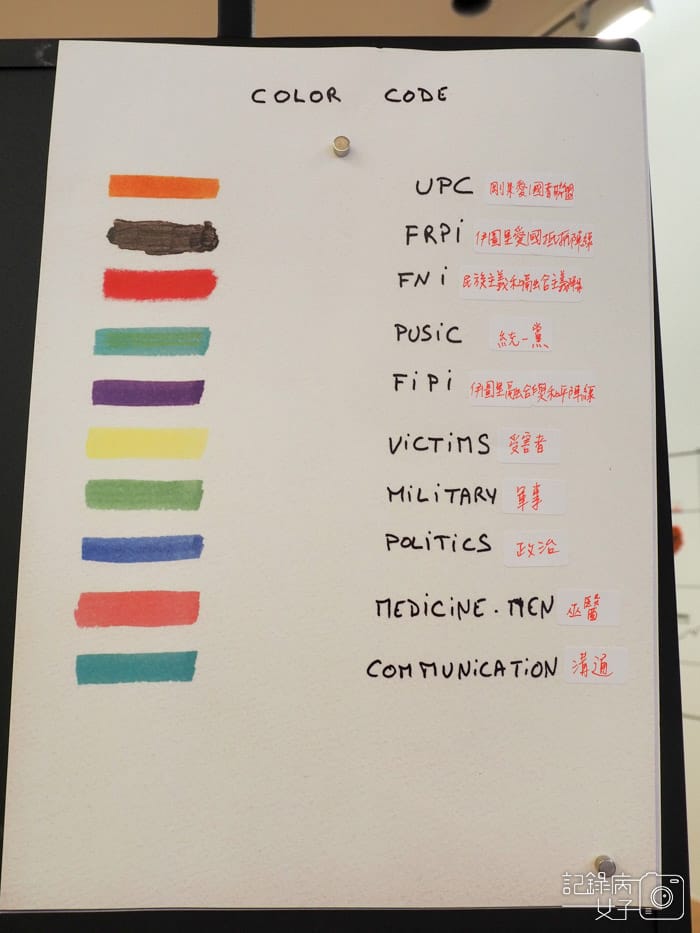 COLOR CODE
UPC 剛果愛國者聯盟
FRPi 伊圖里愛國抵抗陣線
FNi 民族主義和融合主義聯
PUSiC 統一黨
FiPi 伊圖里融合與和平陣線
ViCTiMS 受害者
MiLiTARY 軍事
POLiTiCS 政治
MEDiCiNE.MEN 巫醫
COMMUNiCATiON 溝通
記錄病
女子